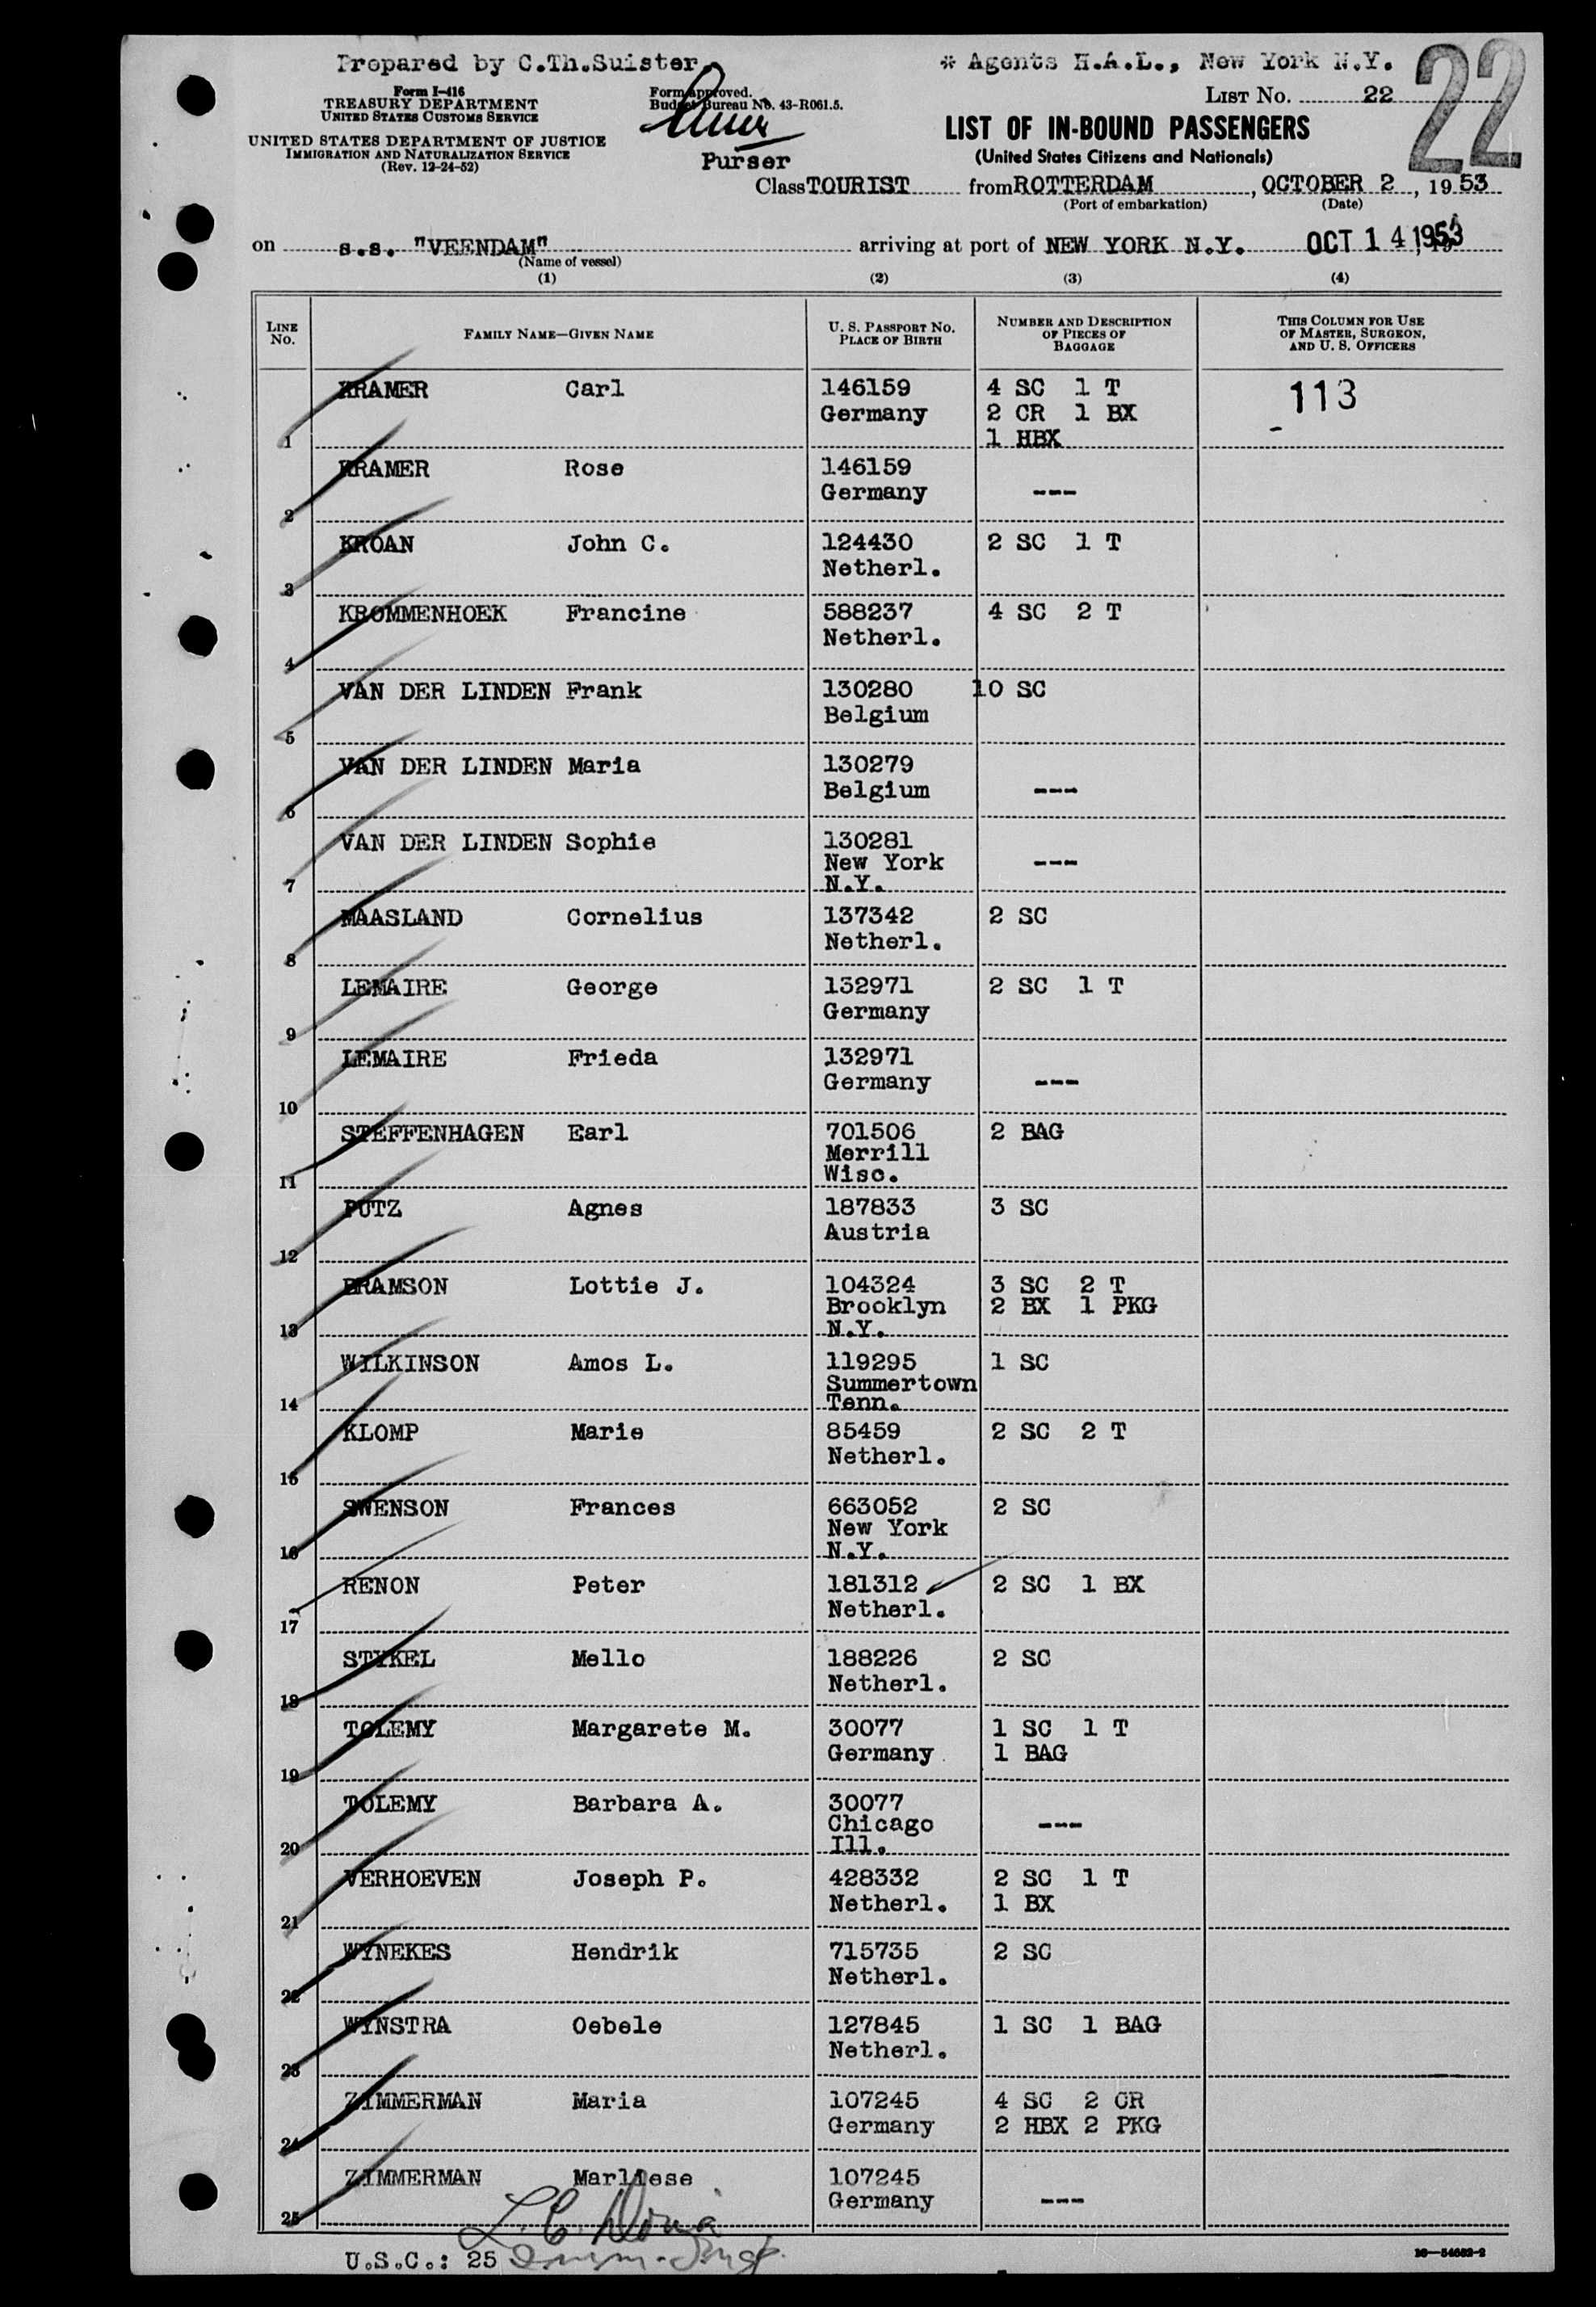 Prepared by C.Th.Suister.
* Agents H.A.L., New York N.Y.
22
Form I-416
TREASURY DEPARTMENT
UNITED STATES CUSTOMS SERVICE
UNITED STATES DEPARTMENT OF JUSTICE
IMMIGRATION AND NATURALIZATION SERVICE
(Rev. 12-24-52)
Form approved.
Budget Bureau No. 43-R061.5.
Purser
LIST NO. 22
LIST OF IN-BOUND PASSENGERS
(United States Citizens and Nationals)
Class TOURIST from ROTTERDAM, OCTOBER 2, 1953
(Port of embarkation) (Date)
on s.s. "VEENDAM" arriving at port of NEW YORK N.Y. OCT 14 1953
(Name of vessel)
(1) (2) (3) (4)
LINE NO. FAMILY NAME—GIVEN NAME U. S. PASSPORT NO. PLACE OF BIRTH NUMBER AND DESCRIPTION OF PIECES OF BAGGAGE THIS COLUMN FOR USE OF MASTER, SURGEON, AND U. S. OFFICERS
KRAMER Carl 146159 4 SC 1 T 113
Germany 2 CR 1 BX
1 1 HBX
KRAMER Rose 146159
Germany ---
2
KROAN John C. 124430 2 SC 1 T
Netherl.
3
KROMMENHOEK Francine 588237 4 SC 2 T
Netherl.
4
VAN DER LINDEN Frank 130280 10 SC
Belgium
5
VAN DER LINDEN Maria 130279
Belgium ---
6
VAN DER LINDEN Sophie 130281
New York ---
7 N.Y.
MAASLAND Cornelius 137342 2 SC
Netherl.
8
LEMAIRE George 132971 2 SC 1 T
Germany
9
LEMAIRE Frieda 132971
Germany ---
10
STEFFENHAGEN Earl 701506 2 BAG
Merrill
11 Wisc.
PUTZ Agnes 187833 3 SC
Austria
12
BRAMSON Lottie J. 104324 3 SC 2 T
Brooklyn 2 BX 1 PKG
13 N.Y.
WILKINSON Amos L. 119295 1 SC
Summertown
14 Tenn.
KLOMP Marie 85459 2 SC 2 T
Netherl.
15
SWENSON Frances 663052 2 SC
New York
16 N.Y.
RENON Peter 181312 2 SC 1 BX
Netherl.
17
STYKEL Mello 188226 2 SC
Netherl.
18
TOLEMY Margarete M. 30077 1 SC 1 T
Germany 1 BAG
19
TOLEMY Barbara A. 30077
Chicago ---
20 Ill.
VERHOEVEN Joseph P. 428332 2 SC 1 T
Netherl. 1 BX
21
WYNEKES Hendrik 715735 2 SC
Netherl.
22
WYNSTRA Oebele 127845 1 SC 1 BAG
Netherl.
23
ZIMMERMAN Maria 107245 4 SC 2 CR
Germany 2 HBX 2 PKG
24
ZIMMERMAN Marliese 107245
Germany ---
25
U.S.C.: 25
16—54682-2